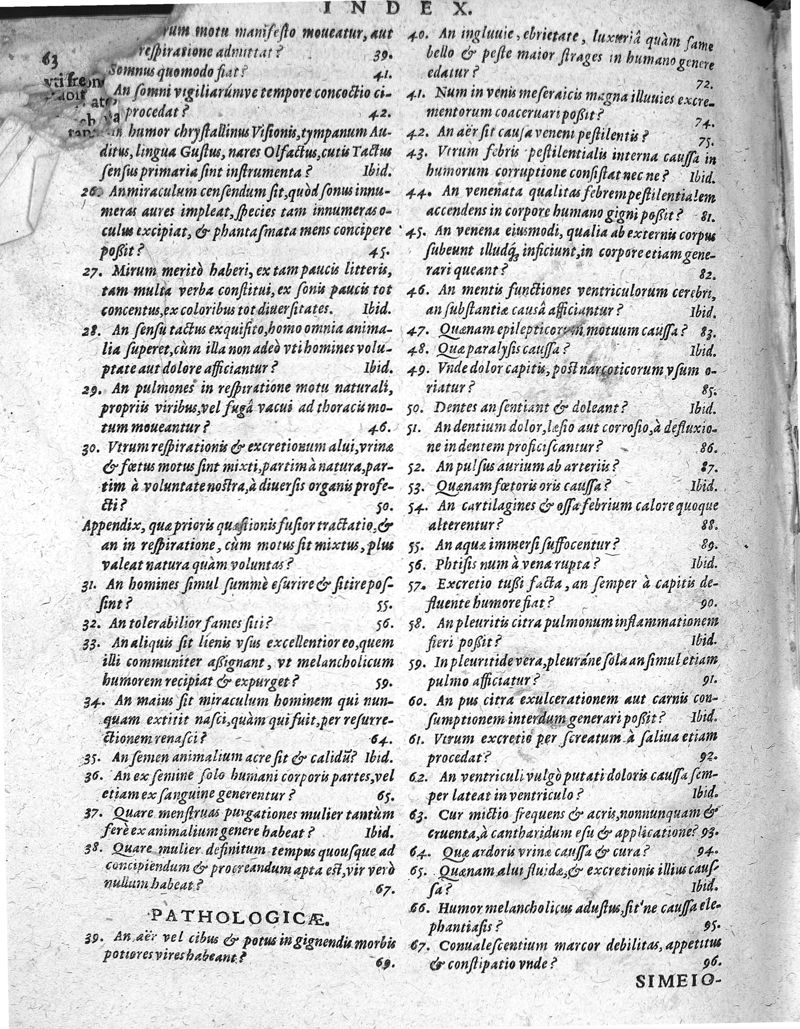 INDEX.
63
rum motu manifesto moueatur, aut
respiratione admittat? 39.
Somnus quomodo fiat? 41.
An somni vigiliarúmve tempore concoctio ci-
procedat? 42.
humor chrystallinus Visionis, tympanum Au-
ditus, lingua Gustus, nares Olfactus, cutis Tactus
sensus primaria sint instrumenta? Ibid.
26. An miraculum censendum sit, quòd sonus innu-
meras aures impleat, species tam innumeras o-
culus excipiat, & phantasmata mens concipere
poßit? 45.
27. Mirum meritò haberi, ex tam paucis litteris,
tam multa verba constitui, ex sonis paucis tot
concentus, ex coloribus tot diuersitates. Ibid.
28. An sensu tactus exquisito, homo omnia anima-
lia superet, cùm illa non adeò vti homines volu-
ptate aut dolore afficiantur? Ibid.
29. An pulmones in respiratione motu naturali,
propriis viribus, vel fugâ vacui ad thoracis mo-
tum moueantur? 46.
30. Vtrum respirationis & excretionum alui, vrinæ
& fœtus motus sint mixti, partim à natura, par-
tim à voluntate nostra, à diuersis organis profe-
cti? 50.
Appendix, quæ prioris quæstionis fusior tractatio, &
an in respiratione, cùm motus sit mixtus, plus
valeat natura quàm voluntas?
31. An homines simul summè esurire & sitire pos-
sint? 55.
32. An tolerabilior fames siti? 56.
33. An aliquis sit lienis vsus excellentior eo, quem
illi communiter aßignant, vt melancholicum
humorem recipiat & expurget? 59.
34. An maius sit miraculum hominem qui nun-
quam extitit nasci, quàm qui fuit, per resurre-
ctionem renasci? 64.
35. An semen animalium acre sit & calidũ? Ibid.
36. An ex semine solo humani corporis partes, vel
etiam ex sanguine generentur? 65.
37. Quare menstruas purgationes mulier tantùm
ferè ex animalium genere habeat? Ibid.
38. Quare mulier definitum tempus quousque ad
concipiendum & procreandum apta est, vir verò
nullum habeat? 67.
PATHOLOGICÆ.
39. An aër vel cibus & potus in gignendis morbis
potiores vires habeant? 69.
40. An ingluuie, ebrietate, luxuriâ quàm fame
bello & peste maior strages in humano genere
edatur? 72.
41. Num in venis meseraicis magna illuuies excre-
mentorum coaceruari poßit? 74.
42. An aër sit causa veneni pestilentis? 75.
43. Vtrum febris pestilentialis interna caussa in
humorum corruptione consistat nec ne? Ibid.
44. An venenata qualitas febrem pestilentialem
accendens in corpore humano gigni poßit? 81.
45. An venena eiusmodi, qualia ab externis corpus
subeunt illudq́, inficiunt, in corpore etiam gene-
rari queant? 82.
46. An mentis functiones ventriculorum cerebri,
an substantiæ causâ afficiantur? Ibid.
47. Quænam epilepticorum motuum caussa? 83.
48. Quæ paralysis caussa? Ibid.
49. Vnde dolor capitis, post narcoticorum vsum o-
riatur? 85.
50. Dentes an sentiant & doleant? Ibid.
51. An dentium dolor, læsio aut corrosio, à defluxio-
ne in dentem proficiscantur? 86.
52. An pulsus aurium ab arteriis? 87.
53. Quænam fœtoris oris caussa? Ibid.
54. An cartilagines & ossa febrium calore quoque
alterentur? 88.
55. An aquæ immersi suffocentur? 89.
56. Phtisis num à vena rupta? Ibid.
57. Excretio tußi facta, an semper à capitis de-
fluente humore fiat? 90.
58. An pleuritis citra pulmonum inflammationem
fieri poßit? Ibid.
59. In pleuritide vera, pleurá­ne sola an simul etiam
pulmo afficiatur? 91.
60. An pus citra exulcerationem aut carnis con-
sumptionem interdum generari poßit? Ibid.
61. Vtrum excretio per screatum à saliua etiam
procedat? 92.
62. An ventriculi vulgò putati doloris caussa sem-
per lateat in ventriculo? Ibid.
63. Cur mictio frequens & acris, nonnunquam &
cruenta, à cantharidum esu & applicatione? 93.
64. Quæ ardoris vrinæ caussa & cura? 94.
65. Quænam alui fluidæ, & excretionis illius caus-
sa? Ibid.
66. Humor melancholicus adustus, sit'ne caussa ele-
phantiasis? 95.
67. Conualescentium marcor debilitas, appetitus
& constipatio vnde? 96.
SIMEIO-